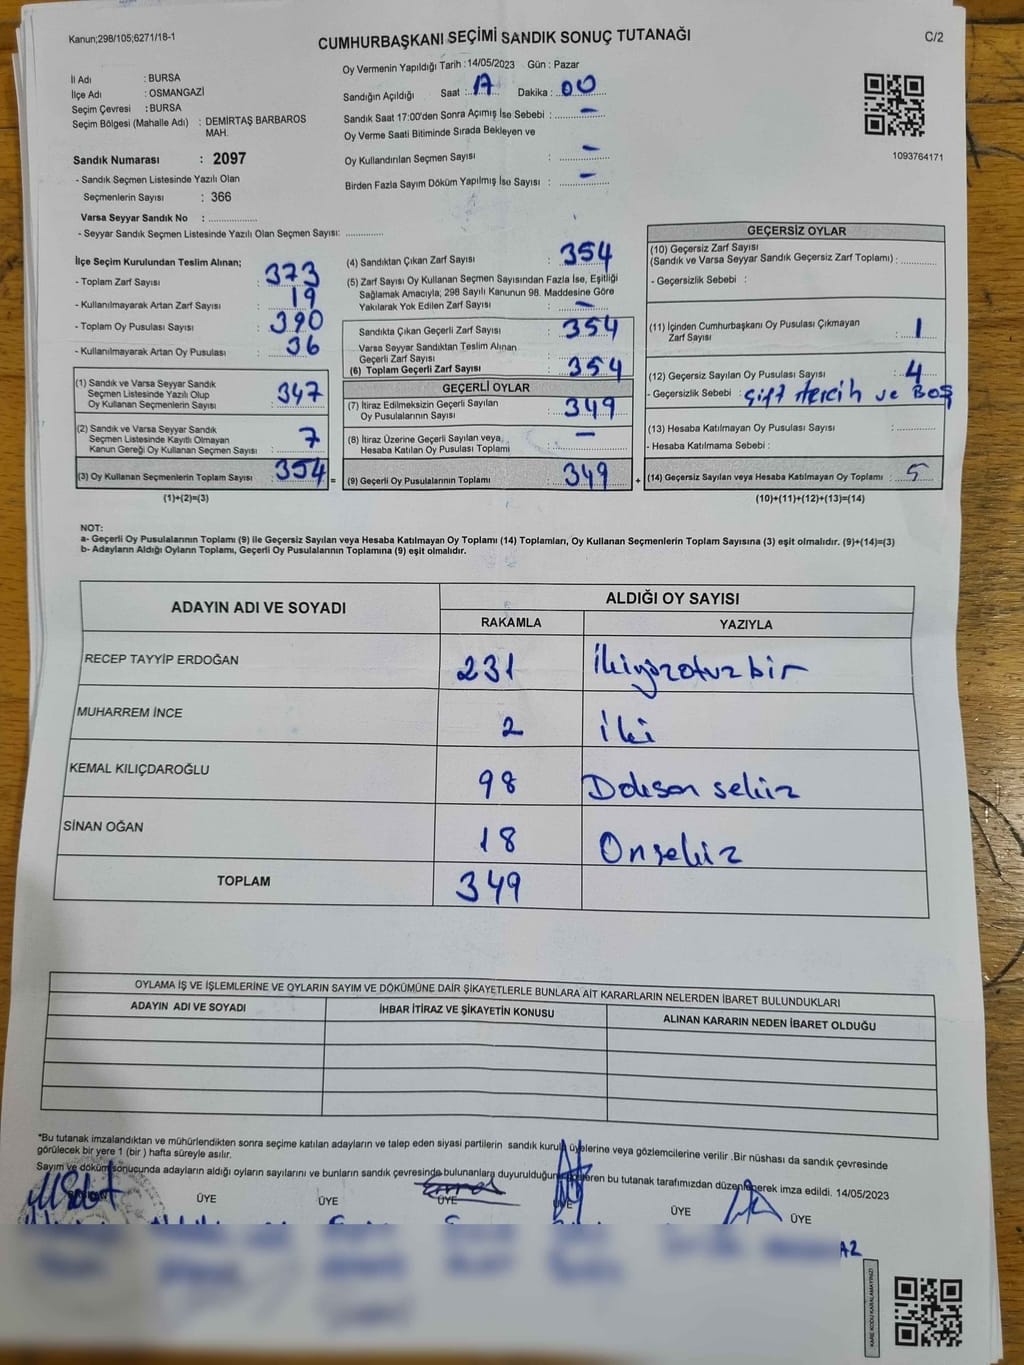 Kanun;298/105;6271/18-1
CUMHURBAŞKANI SEÇİMİ SANDIK SONUÇ TUTANAĞI
C/2
İl Adı : BURSA
İlçe Adı : OSMANGAZİ
Seçim Çevresi : BURSA
Seçim Bölgesi (Mahalle Adı) : DEMİRTAŞ BARBAROS MAH.
Sandık Numarası : 2097
- Sandık Seçmen Listesinde Yazılı Olan
Seçmenlerin Sayısı : 366
Varsa Seyyar Sandık No : ..............
- Seyyar Sandık Seçmen Listesinde Yazılı Olan Seçmen Sayısı: ............
Oy Vermenin Yapıldığı Tarih : 14/05/2023 Gün : Pazar
Sandığın Açıldığı Saat : 17 Dakika : 00
Sandık Saat 17:00'den Sonra Açımış İse Sebebi : -
Oy Verme Saati Bitiminde Sırada Bekleyen ve
Oy Kullandırılan Seçmen Sayısı : -
Birden Fazla Sayım Döküm Yapılmış İse Sayısı : -
1093764171
İlçe Seçim Kurulundan Teslim Alınan;
- Toplam Zarf Sayısı : 373
- Kullanılmayarak Artan Zarf Sayısı : 19
- Toplam Oy Pusulası Sayısı : 390
- Kullanılmayarak Artan Oy Pusulası : 36
(1) Sandık ve Varsa Seyyar Sandık
Seçmen Listesinde Yazılı Olup
Oy Kullanan Seçmenlerin Sayısı : 347
(2) Sandık ve Varsa Seyyar Sandık
Seçmen Listesinde Kayıtlı Olmayan
Kanun Gereği Oy Kullanan Seçmen Sayısı : 7
(3) Oy Kullanan Seçmenlerin Toplam Sayısı : 354 =
(1)+(2)=(3)
(4) Sandıktan Çıkan Zarf Sayısı : 354
(5) Zarf Sayısı Oy Kullanan Seçmen Sayısından Fazla İse, Eşitliği
Sağlamak Amacıyla; 298 Sayılı Kanunun 98. Maddesine Göre
Yakılarak Yok Edilen Zarf Sayısı : -
Sandıkta Çıkan Geçerli Zarf Sayısı : 354
Varsa Seyyar Sandıktan Teslim Alınan
Geçerli Zarf Sayısı :
(6) Toplam Geçerli Zarf Sayısı : 354
GEÇERLİ OYLAR
(7) İtiraz Edilmeksizin Geçerli Sayılan
Oy Pusulalarının Sayısı : 349
(8) İtiraz Üzerine Geçerli Sayılan veya
Hesaba Katılan Oy Pusulası Toplami : -
(9) Geçerli Oy Pusulalarının Toplamı : 349 +
GEÇERSİZ OYLAR
(10) Geçersiz Zarf Sayısı
(Sandık ve Varsa Seyyar Sandık Geçersiz Zarf Toplamı) : ............
- Geçersizlik Sebebi :
(11) İçinden Cumhurbaşkanı Oy Pusulası Çıkmayan
Zarf Sayısı : 1
(12) Geçersiz Sayılan Oy Pusulası Sayısı : 4
- Geçersizlik Sebebi : Çift tercih ve Boş
(13) Hesaba Katılmayan Oy Pusulası Sayısı : ............
- Hesaba Katılmama Sebebi :
(14) Geçersiz Sayılan veya Hesaba Katılmayan Oy Toplamı : 5
(10)+(11)+(12)+(13)=(14)
NOT:
a- Geçerli Oy Pusulalarının Toplamı (9) ile Geçersiz Sayılan veya Hesaba Katılmayan Oy Toplamı (14) Toplamları, Oy Kullanan Seçmenlerin Toplam Sayısına (3) eşit olmalıdır. (9)+(14)=(3)
b- Adayların Aldığı Oyların Toplamı, Geçerli Oy Pusulalarının Toplamına (9) eşit olmalıdır.
ADAYIN ADI VE SOYADI
ALDIĞI OY SAYISI
RAKAMLA YAZIYLA
RECEP TAYYİP ERDOĞAN 231 İkiyüzotuzbir
MUHARREM İNCE 2 İki
KEMAL KILIÇDAROĞLU 98 Doksan sekiz
SİNAN OĞAN 18 Onsekiz
TOPLAM 349
OYLAMA İŞ VE İŞLEMLERİNE VE OYLARIN SAYIM VE DÖKÜMÜNE DAİR ŞİKAYETLERLE BUNLARA AİT KARARLARIN NELERDEN İBARET BULUNDUKLARI
ADAYIN ADI VE SOYADI İHBAR İTİRAZ VE ŞİKAYETİN KONUSU ALINAN KARARIN NEDEN İBARET OLDUĞU
*Bu tutanak imzalandıktan ve mühürlendikten sonra seçime katılan adayların ve talep eden siyasi partilerin sandık kurulu üyelerine veya gözlemcilerine verilir .Bir nüshası da sandık çevresinde
görülecek bir yere 1 (bir ) hafta süreyle asılır.
Sayım ve döküm sonucunda adayların aldığı oyların sayılarını ve bunların sandık çevresinde bulunanlara duyurulduğunu gösteren bu tutanak tarafımızdan düzenlenerek imza edildi. 14/05/2023
ÜYE ÜYE ÜYE ÜYE ÜYE ÜYE
AZ
KARE KODU KARALAMAYINIZ!